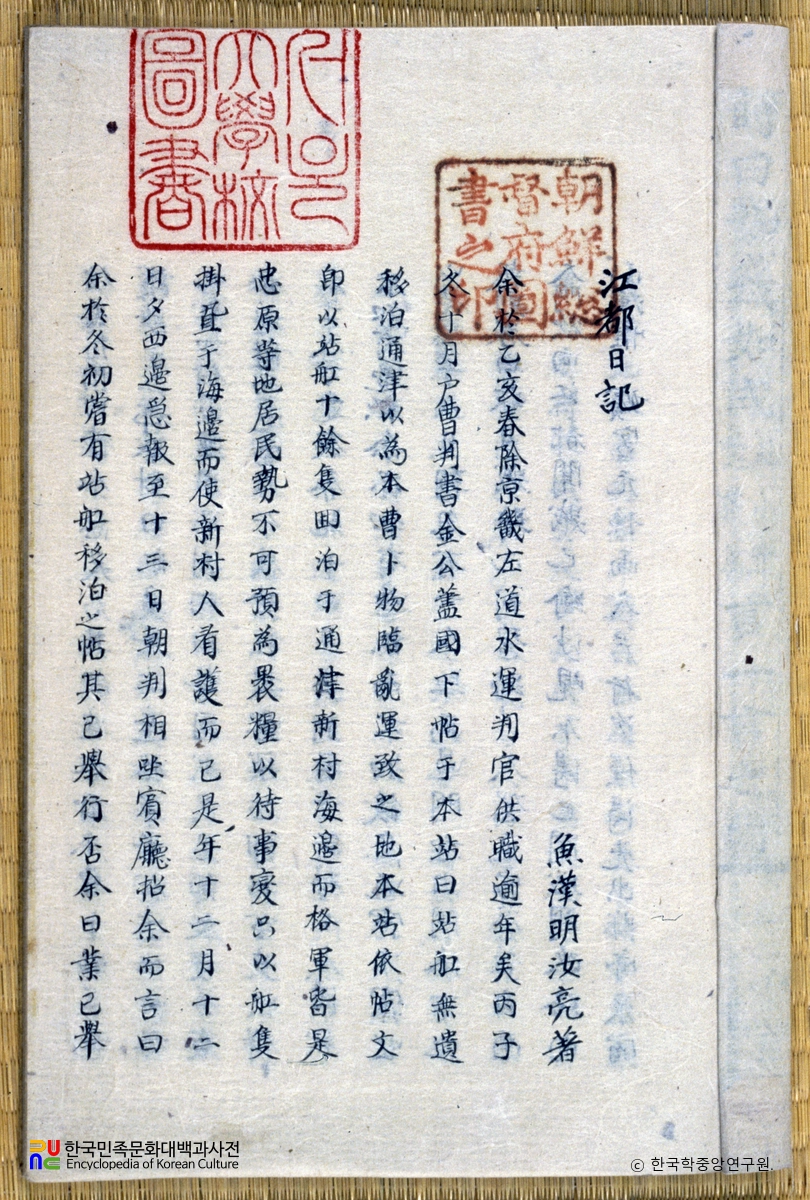 江都日記
魚漢明汝亮著
余於乙亥春除京畿左道水運判官供職逾年矣丙子
冬十月戶曹判書金公藎國下帖于本站曰站舡無遺
移泊通津以為本曹卜物臨亂運致之地本站依帖文
即以站舡十餘隻回泊于通津新村海邊而格軍皆是
忠原等地居民勢不可預為裹糧以待事變只以舡隻
掛置于海邊而使新村人看護而已是年十二月十二
日夕西邊急報至十三日朝判相坐賓廳招余而言曰
余於冬初嘗有站舡移泊之帖其已舉行否余曰業已舉
朝鮮總
督府圖
書之印
大學校
圖書
한국민족문화대백과사전
Encyclopedia of Korean Culture
ⓒ 한국학중앙연구원